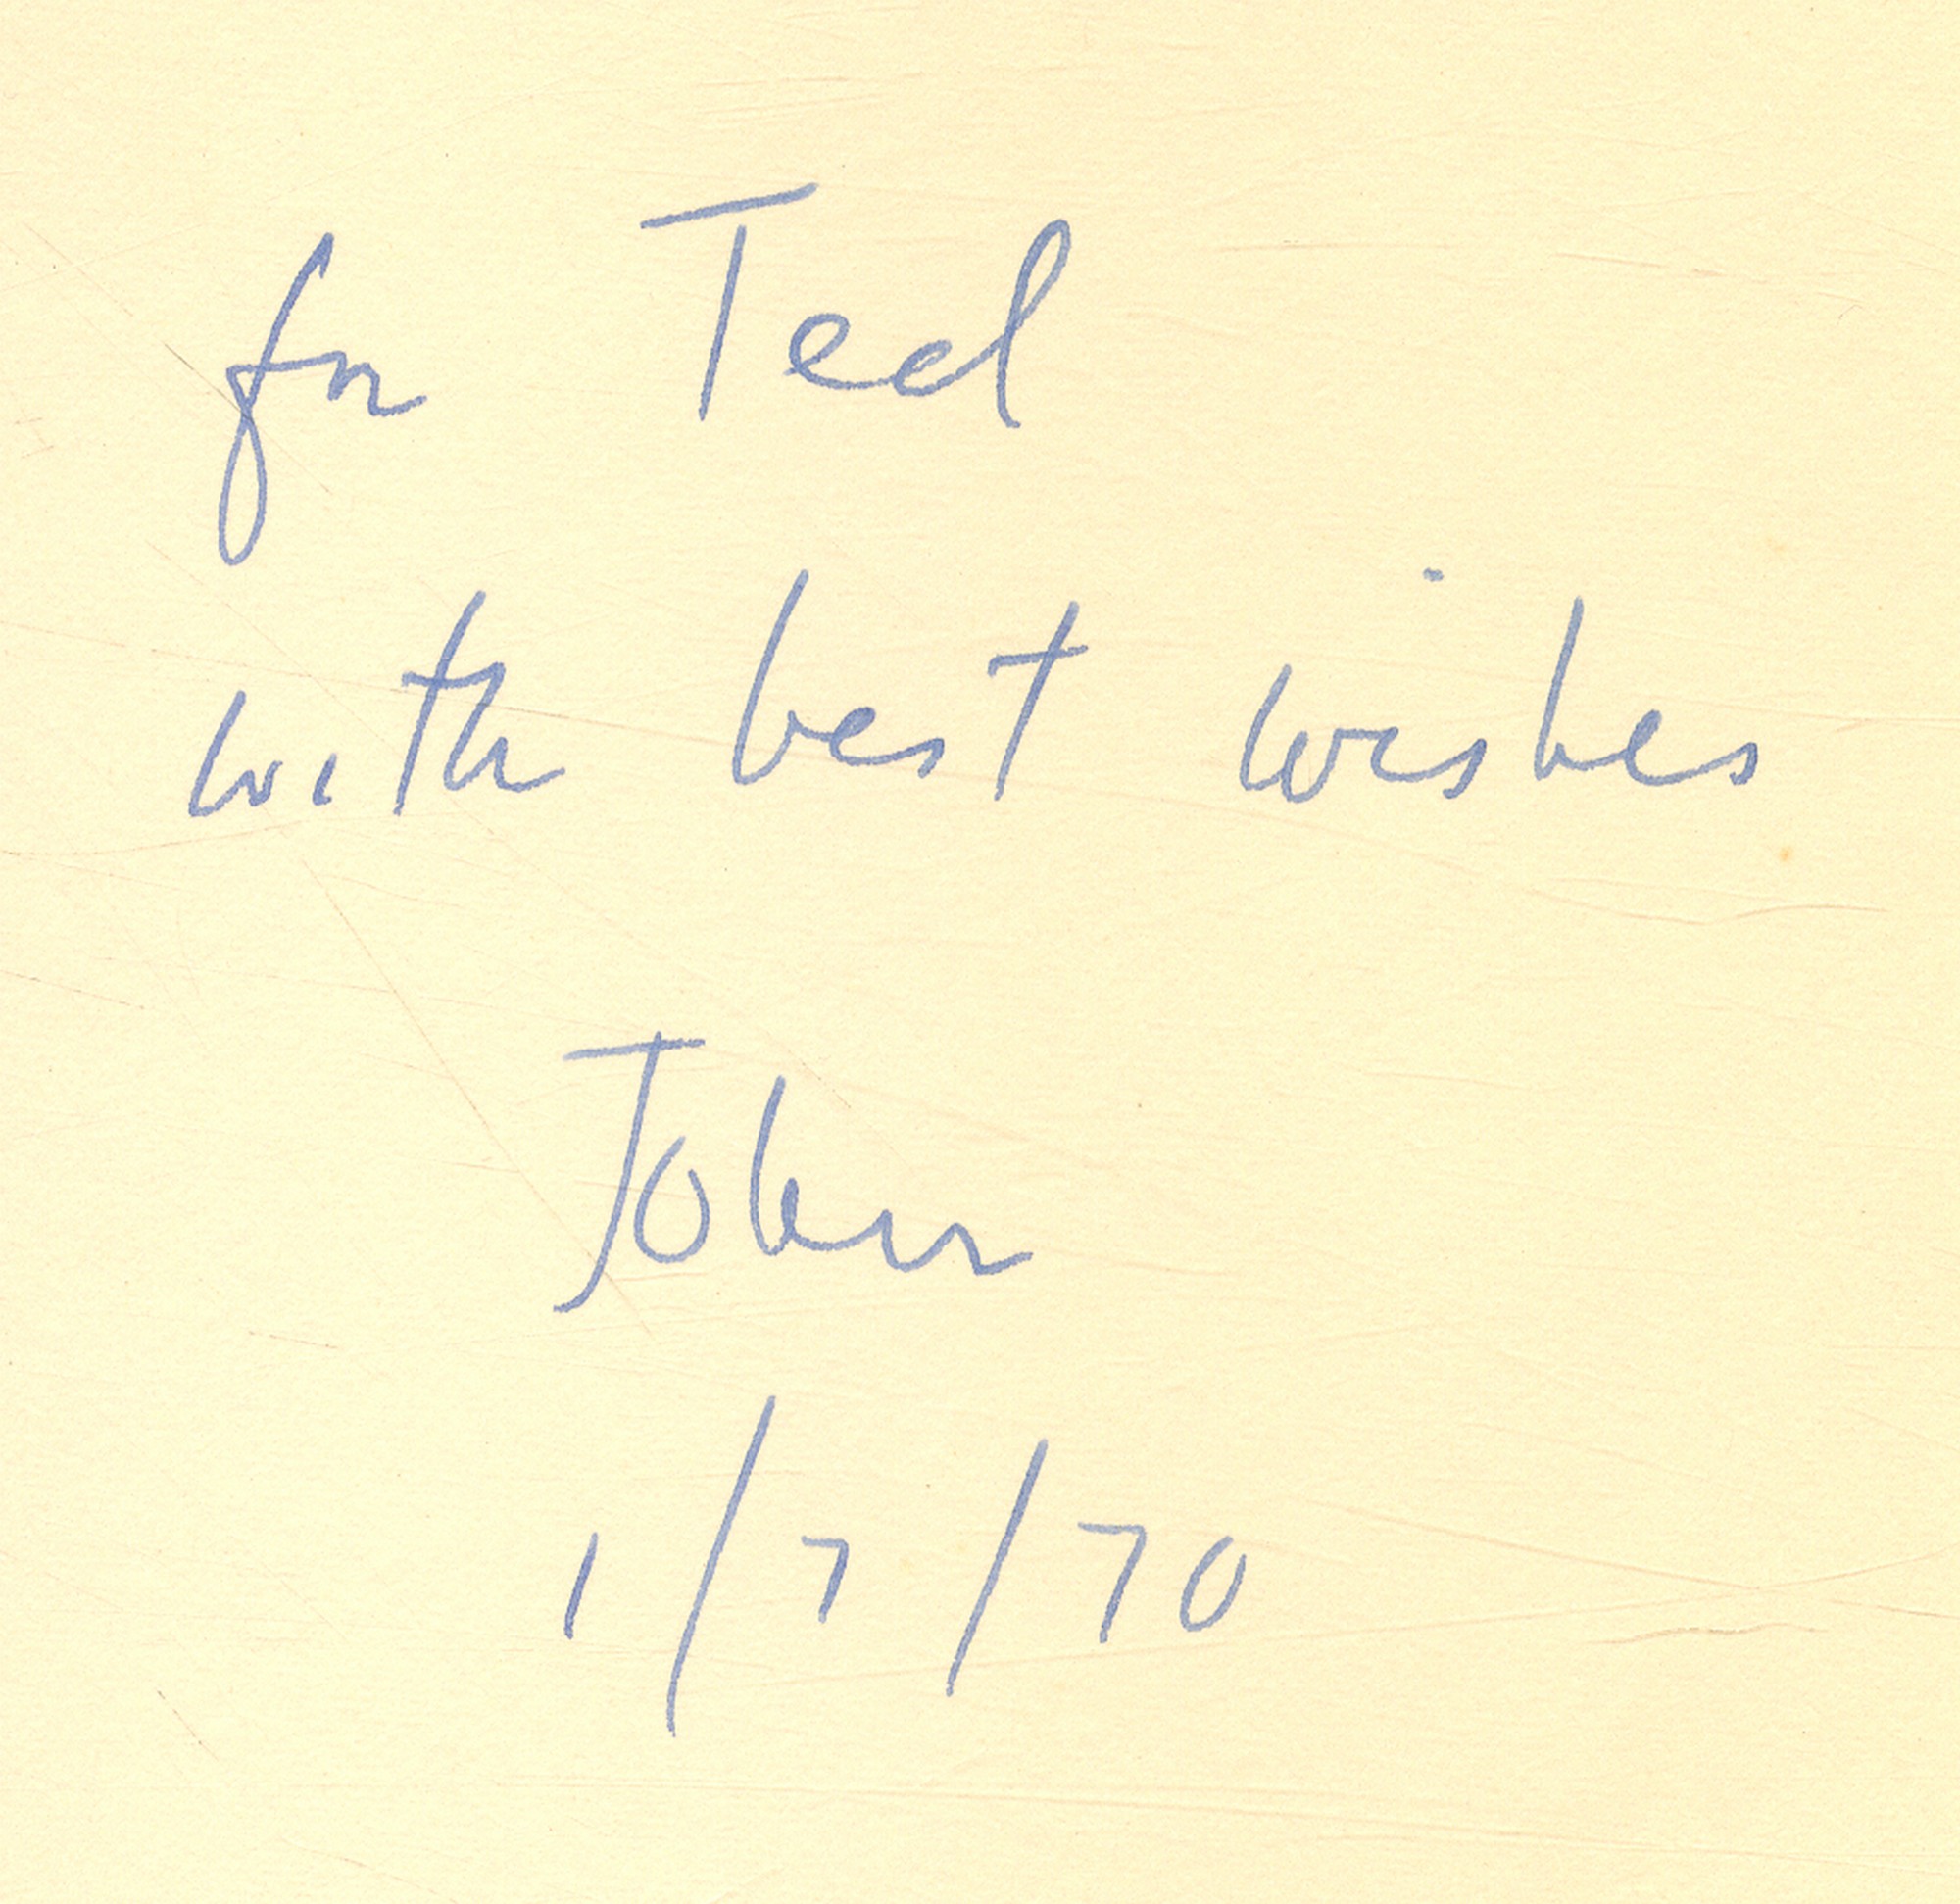 for Ted
with best wishes
John
1/7/70